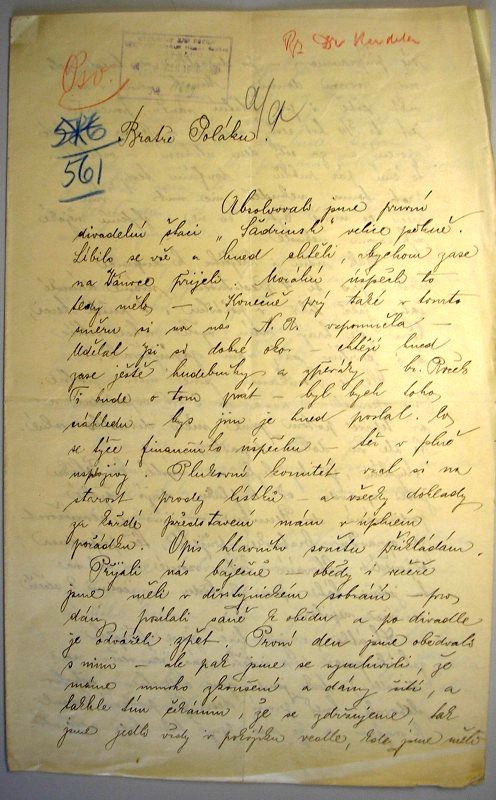 Osv.
a/a
561
Bratře Poláku.
Absolvovali jsme první
divadelní štaci „Šadrinsk" velice pěkně.
Líbilo se vše a hned chtěli, abychom zase
na Vánoce přijeli. Morální úspěch to
tedy mělo, — Konečně prý také v tomto
směru si na nás A. R. vzpomněla —
Udělat si dobré oko — chtějí hned
zase ještě hudebníky a zpěváky — br.
Ti bude o tom psát — byl bych toho
náhledu bys jim je hned poslal. Co
se týče finančního úspěchu — též v plné
uspokojivý. Plukovní komitét vzal si na
starost prodej lístků — a všecky doklady
za každé představení mám v úplném
pořádku. Opis hlavního součtu přikládám.
Přijali nás báječně — obědy i večeře
jsme měli v důstojnickém sobrání — pro
dámy posílali sáně k obědu a po divadle
je odváželi zpět. První den jsme obědvali
s nimi — ale pak jsme se vymluvili, že
máme mnoho zkoušení a dámy šití, a
takhle tím čekáním, že se zdržujeme, tak
jsme jedli vždy v pokojíku vedle, kde jsme měli